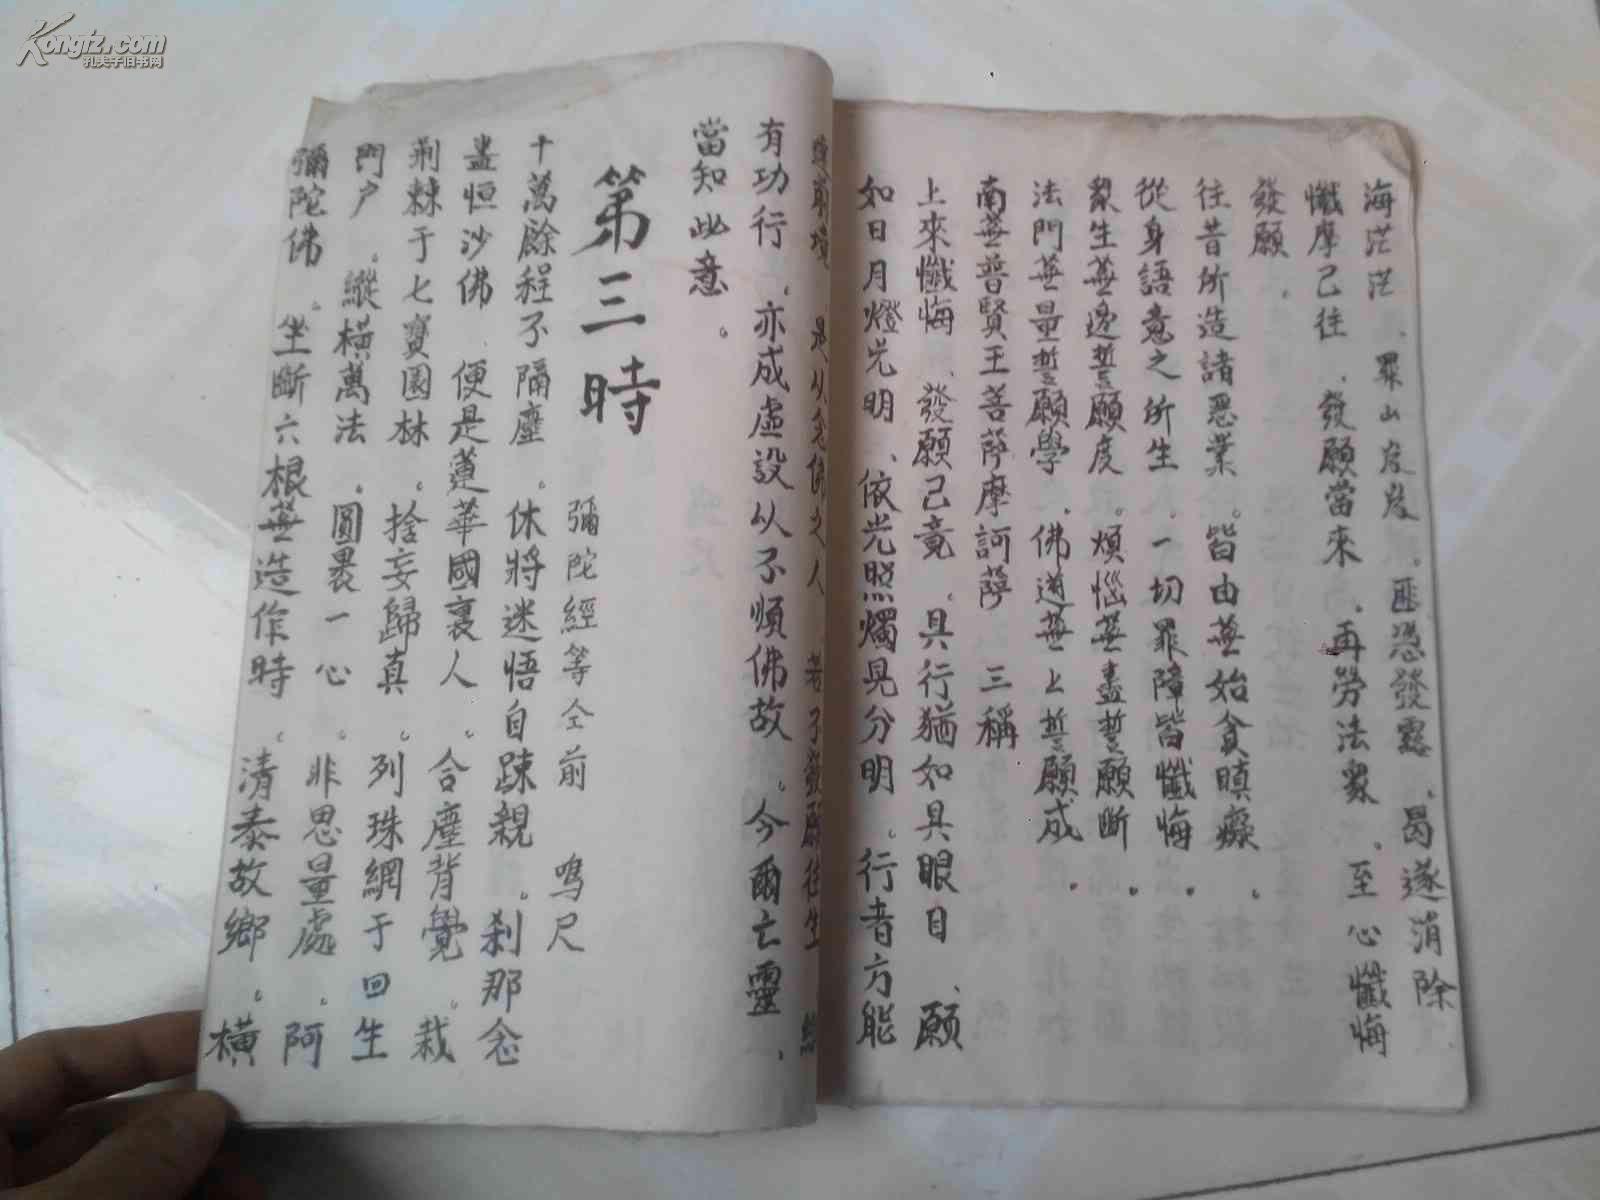 海茫茫、罪山岌岌。匪恐發露、曷遂消除
懺摩已往、發願當來。再勞法衆。至心懺悔
發願。
往昔所造諸惡業。皆由無始貪瞋癡。
從身語意之所生。一切罪障皆懺悔。
衆生無邊誓願度。煩惱無盡誓願斷。
法門無量誓願學。佛道無上誓願成。
南無普賢王菩薩摩訶薩 三稱
上來懺悔、發願已竟。具行猶如具眼目、願
如日月燈光明、依光照燭見分明。行者方能
是以念佛之人 若不發願往生
有功行。亦成虛設以不順佛故。今爾亡靈、
當知此意。
第三時
彌陀經等仝前 鳴尺
十萬餘程不隔塵。休將迷悟自踈親。刹那念
盡恒沙佛、便是蓮華國裏人。合塵背覺。栽
荆棘于七寳園林。捨妄歸真。列珠網于回生
門户。縱橫萬法。圓裹一心。非思量處。阿
彌陀佛。坐斷六根無造作時。清泰故鄉。橫
Kongfz.com
孔夫子旧书网